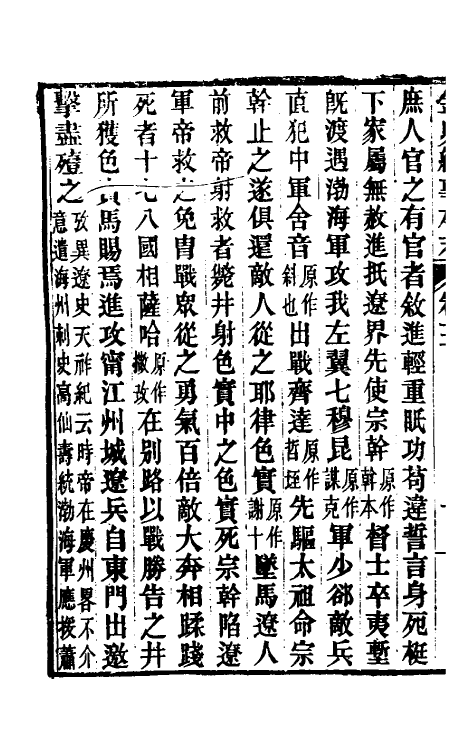 金史紀事本末 卷二
庶人官之有官者敘進輕重眂功茍違誓言身死梃
下家屬無赦進抵遼界先使宗幹原作斡本督士卒夷塹
既渡遇渤海軍攻我左翼七穆昆原作謀克軍少卻敵兵
直犯中軍舍音原作斜也出戰齊達原作哲垤先驅太祖命宗
幹止之遂俱還敵人從之耶律色實原作謝十墜馬遼人
前救帝射救者斃并射色實中之色實死宗幹陷遼
軍帝救之免冑戰眾從之勇氣百倍敵大奔相蹂踐
死者十七八國相薩哈原作撒改在別路以戰勝告之并
所獲色實馬賜焉進攻甯江州城遼兵自東門出邀
擊盡殪之攷異遼史天祚紀云時帝在慶州畧不介意遣海州刺史高仙壽統渤海軍應援蕭